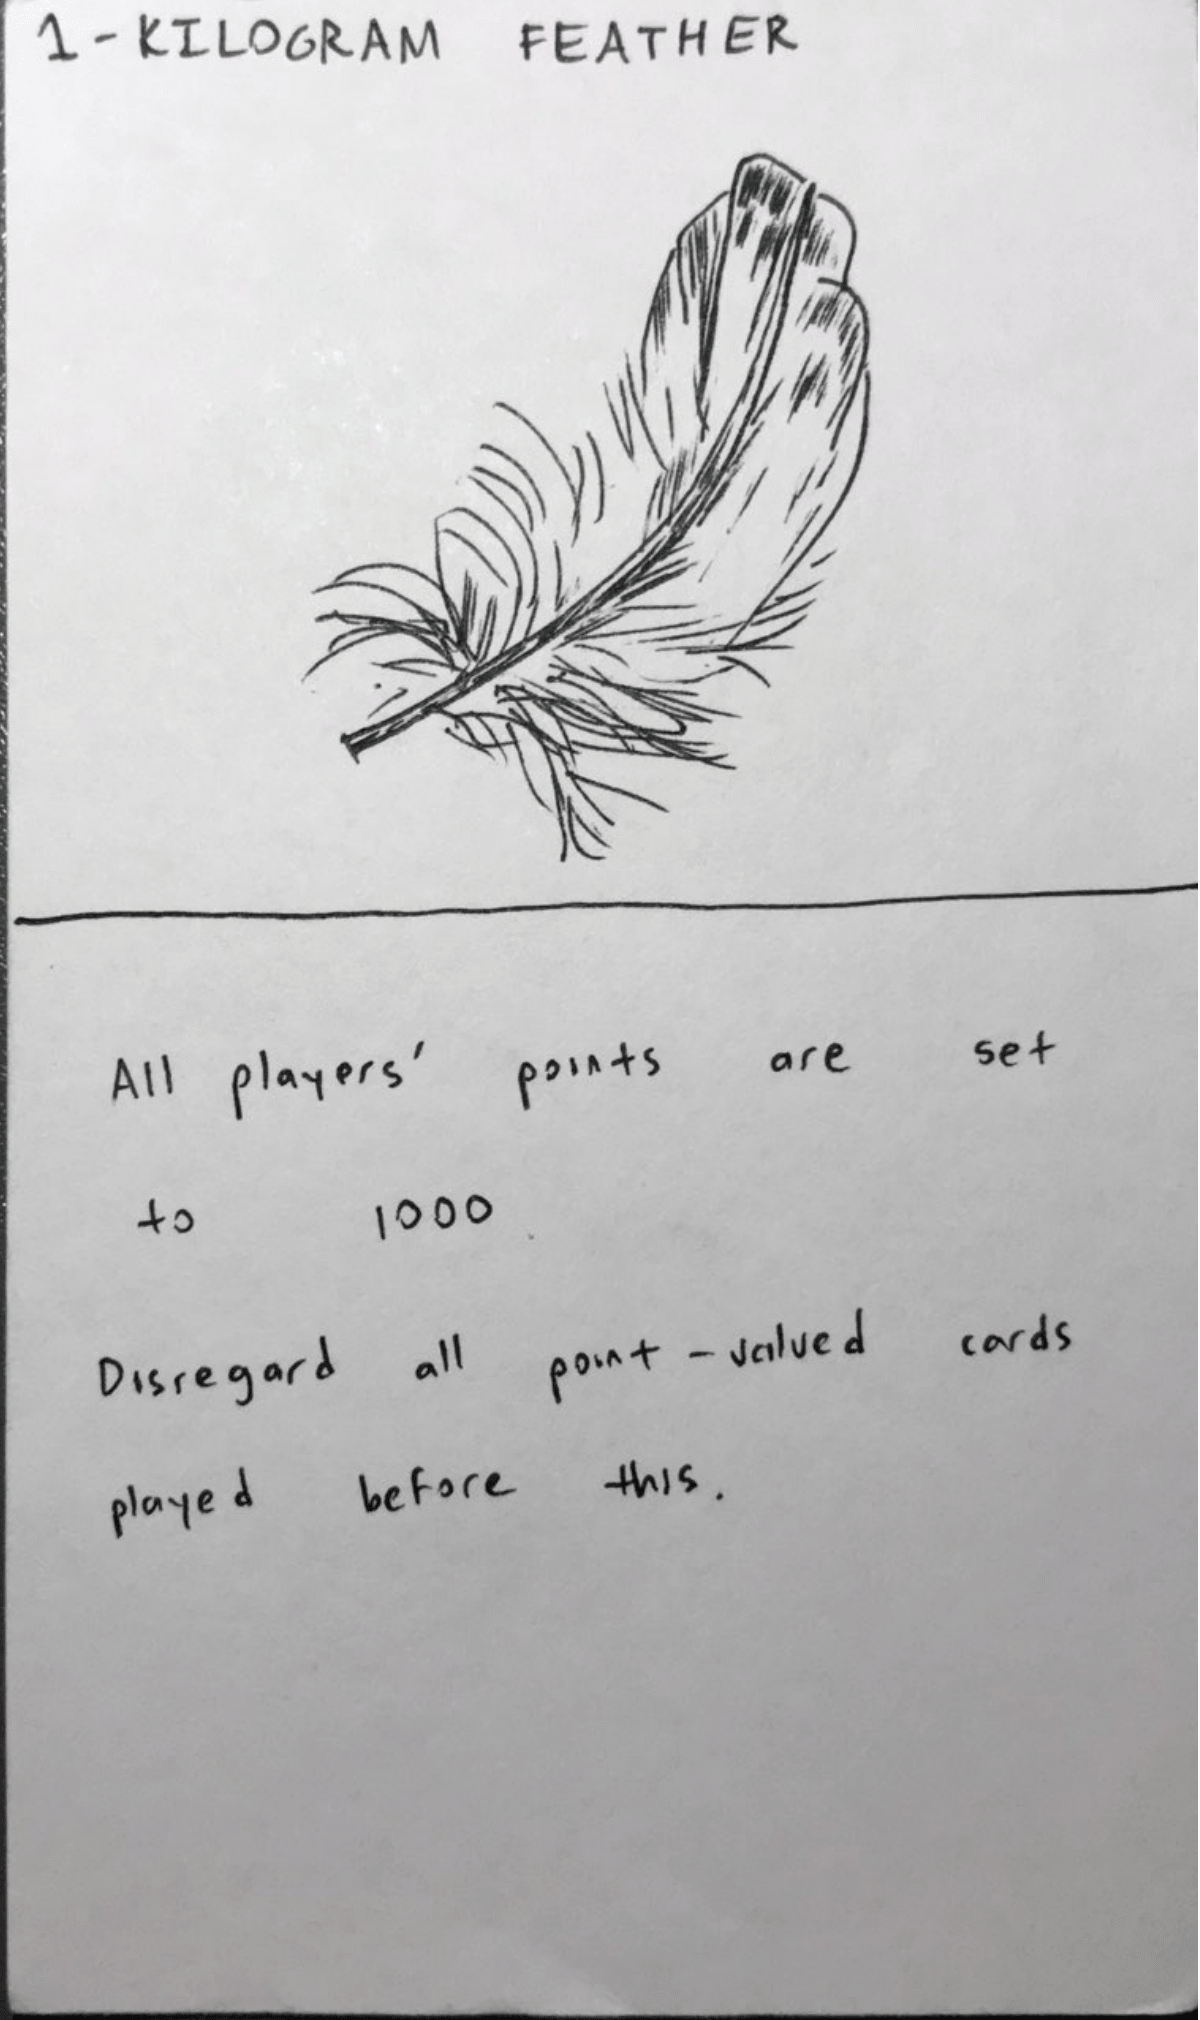 1-KILOGRAM FEATHER
All players' points are set
to 1000.
Disregard all point-valued cards
played before this.